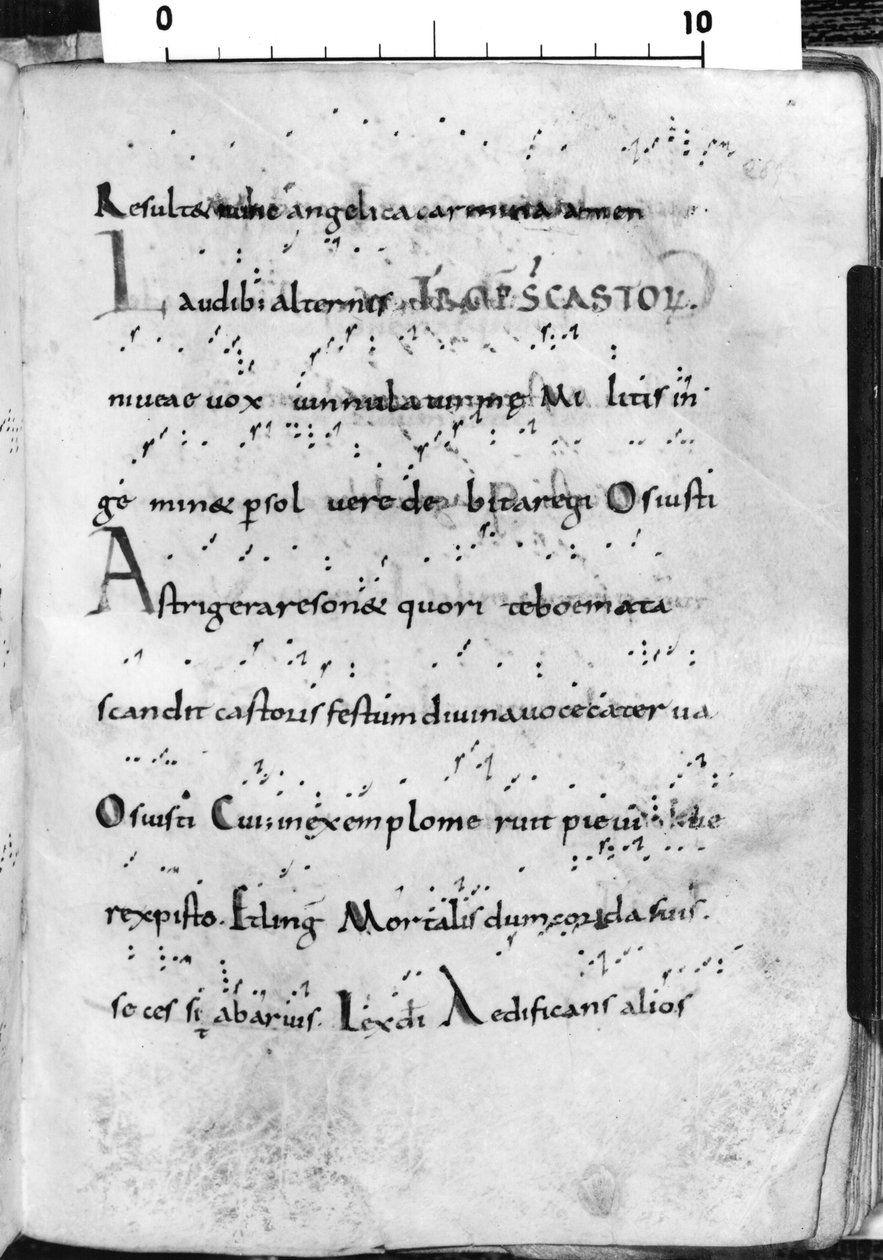 0 10
Result& angelica carmina amen
Laudib; alternis TROP S CASTOR.
niveae vox Mi litis in
ge min& psol vere de bita regi Os iusti
Astrigera reson& quori te boemata
scandit castoris festum divina voce caterva
Os iusti Cui; in exemplo me ruit pie
rex pisto. Et ling Mortalis dum corda suis.
se ces sit ab arvis. Lex di Aedificans alios